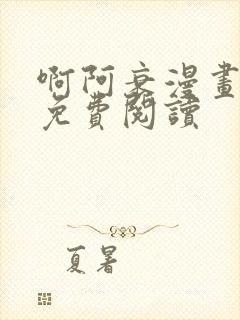 啊阿衰漫畫
免費閱讀
夏暑